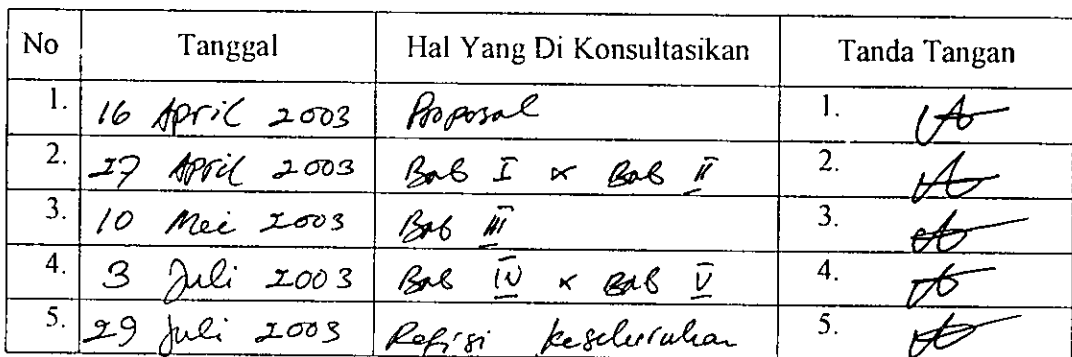 No Tanggal Hal Yang Di Konsultasikan Tanda Tangan
1. 16 April 2003 Proposal 1.
2. 27 April 2003 Bab I & Bab II 2.
3. 10 Mei 2003 Bab III 3.
4. 3 Juli 2003 Bab IV & Bab V 4.
5. 29 Juli 2003 Refisi keseluruhan 5.